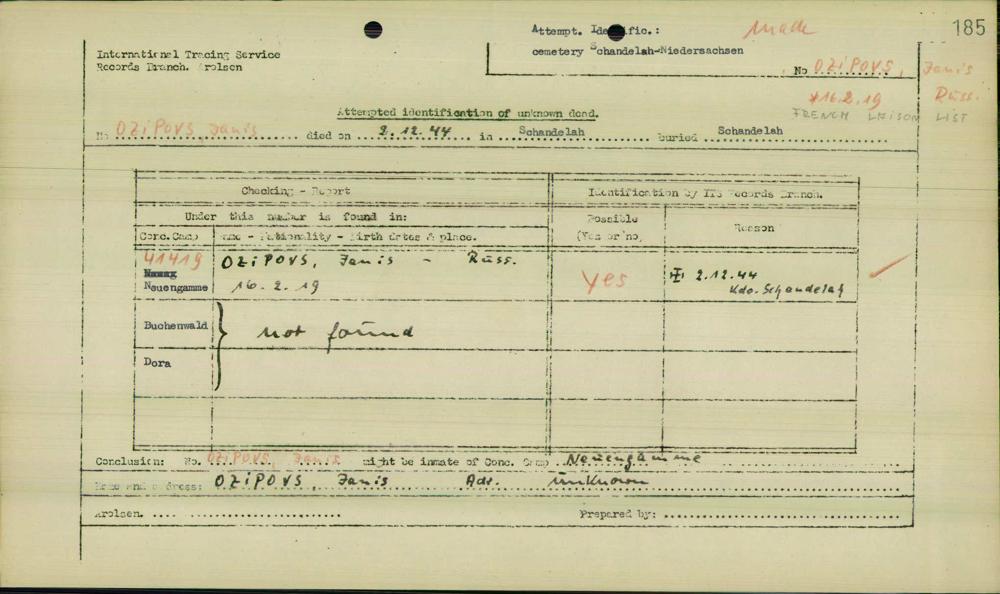 185
Attempt. Identific.: made
cemetery Schandelah-Niedersachsen
No OZIPOVS, Janis
*16.2.19 Russ.
FRENCH LAISON LIST
International Tracing Service
Records Branch. Arolsen
Attempted identification of unknown dead.
No OZIPOVS Janis died on 2.12.44 in Schandelah buried Schandelah
Checking - Report Identification by ITS Records Branch.
Under this number is found in: Possible Reason
Conc.Camp Name - Nationality - Birth dates & place. (Yes or no)
41419 OZIPOVS, Janis - Russ.
Neuengamme 16.2.19 yes 2.12.44
Kdo. Schandelah
Buchenwald not found
Dora
Conclusion: No. OZIPOVS, Janis might be inmate of Conc. Camp Neuengamme
Name and address: OZIPOVS, Janis Adr. unknown
Arolsen. Prepared by: